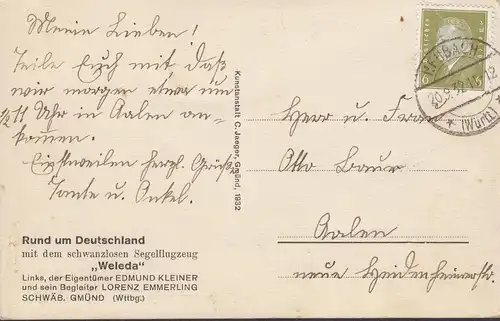 Meine Lieben!
Teile Euch mit daß
wir morgen etwa um
1/2 11 Uhr in Aalen an-
kommen.
Einstweilen herzl. Grüße
Tante u. Onkel.
Rund um Deutschland
mit dem schwanzlosen Segelflugzeug
„Weleda"
Links, der Eigentümer EDMUND KLEINER
und sein Begleiter LORENZ EMMERLING
SCHWÄB. GMÜND (Wttbg.)
Kunstanstalt C. Jaeger, Gmünd, 1932
6
20.9.32
* (Württ)
Herr u. Frau
Otto Bauer
Aalen
neue Heidenheimerstr.